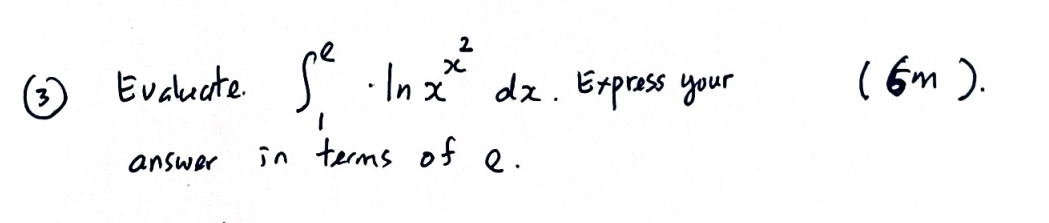 ③ Evaluate. ∫₁ᵉ ·ln x^{x^2} dx. Express your (6m).
answer in terms of e.